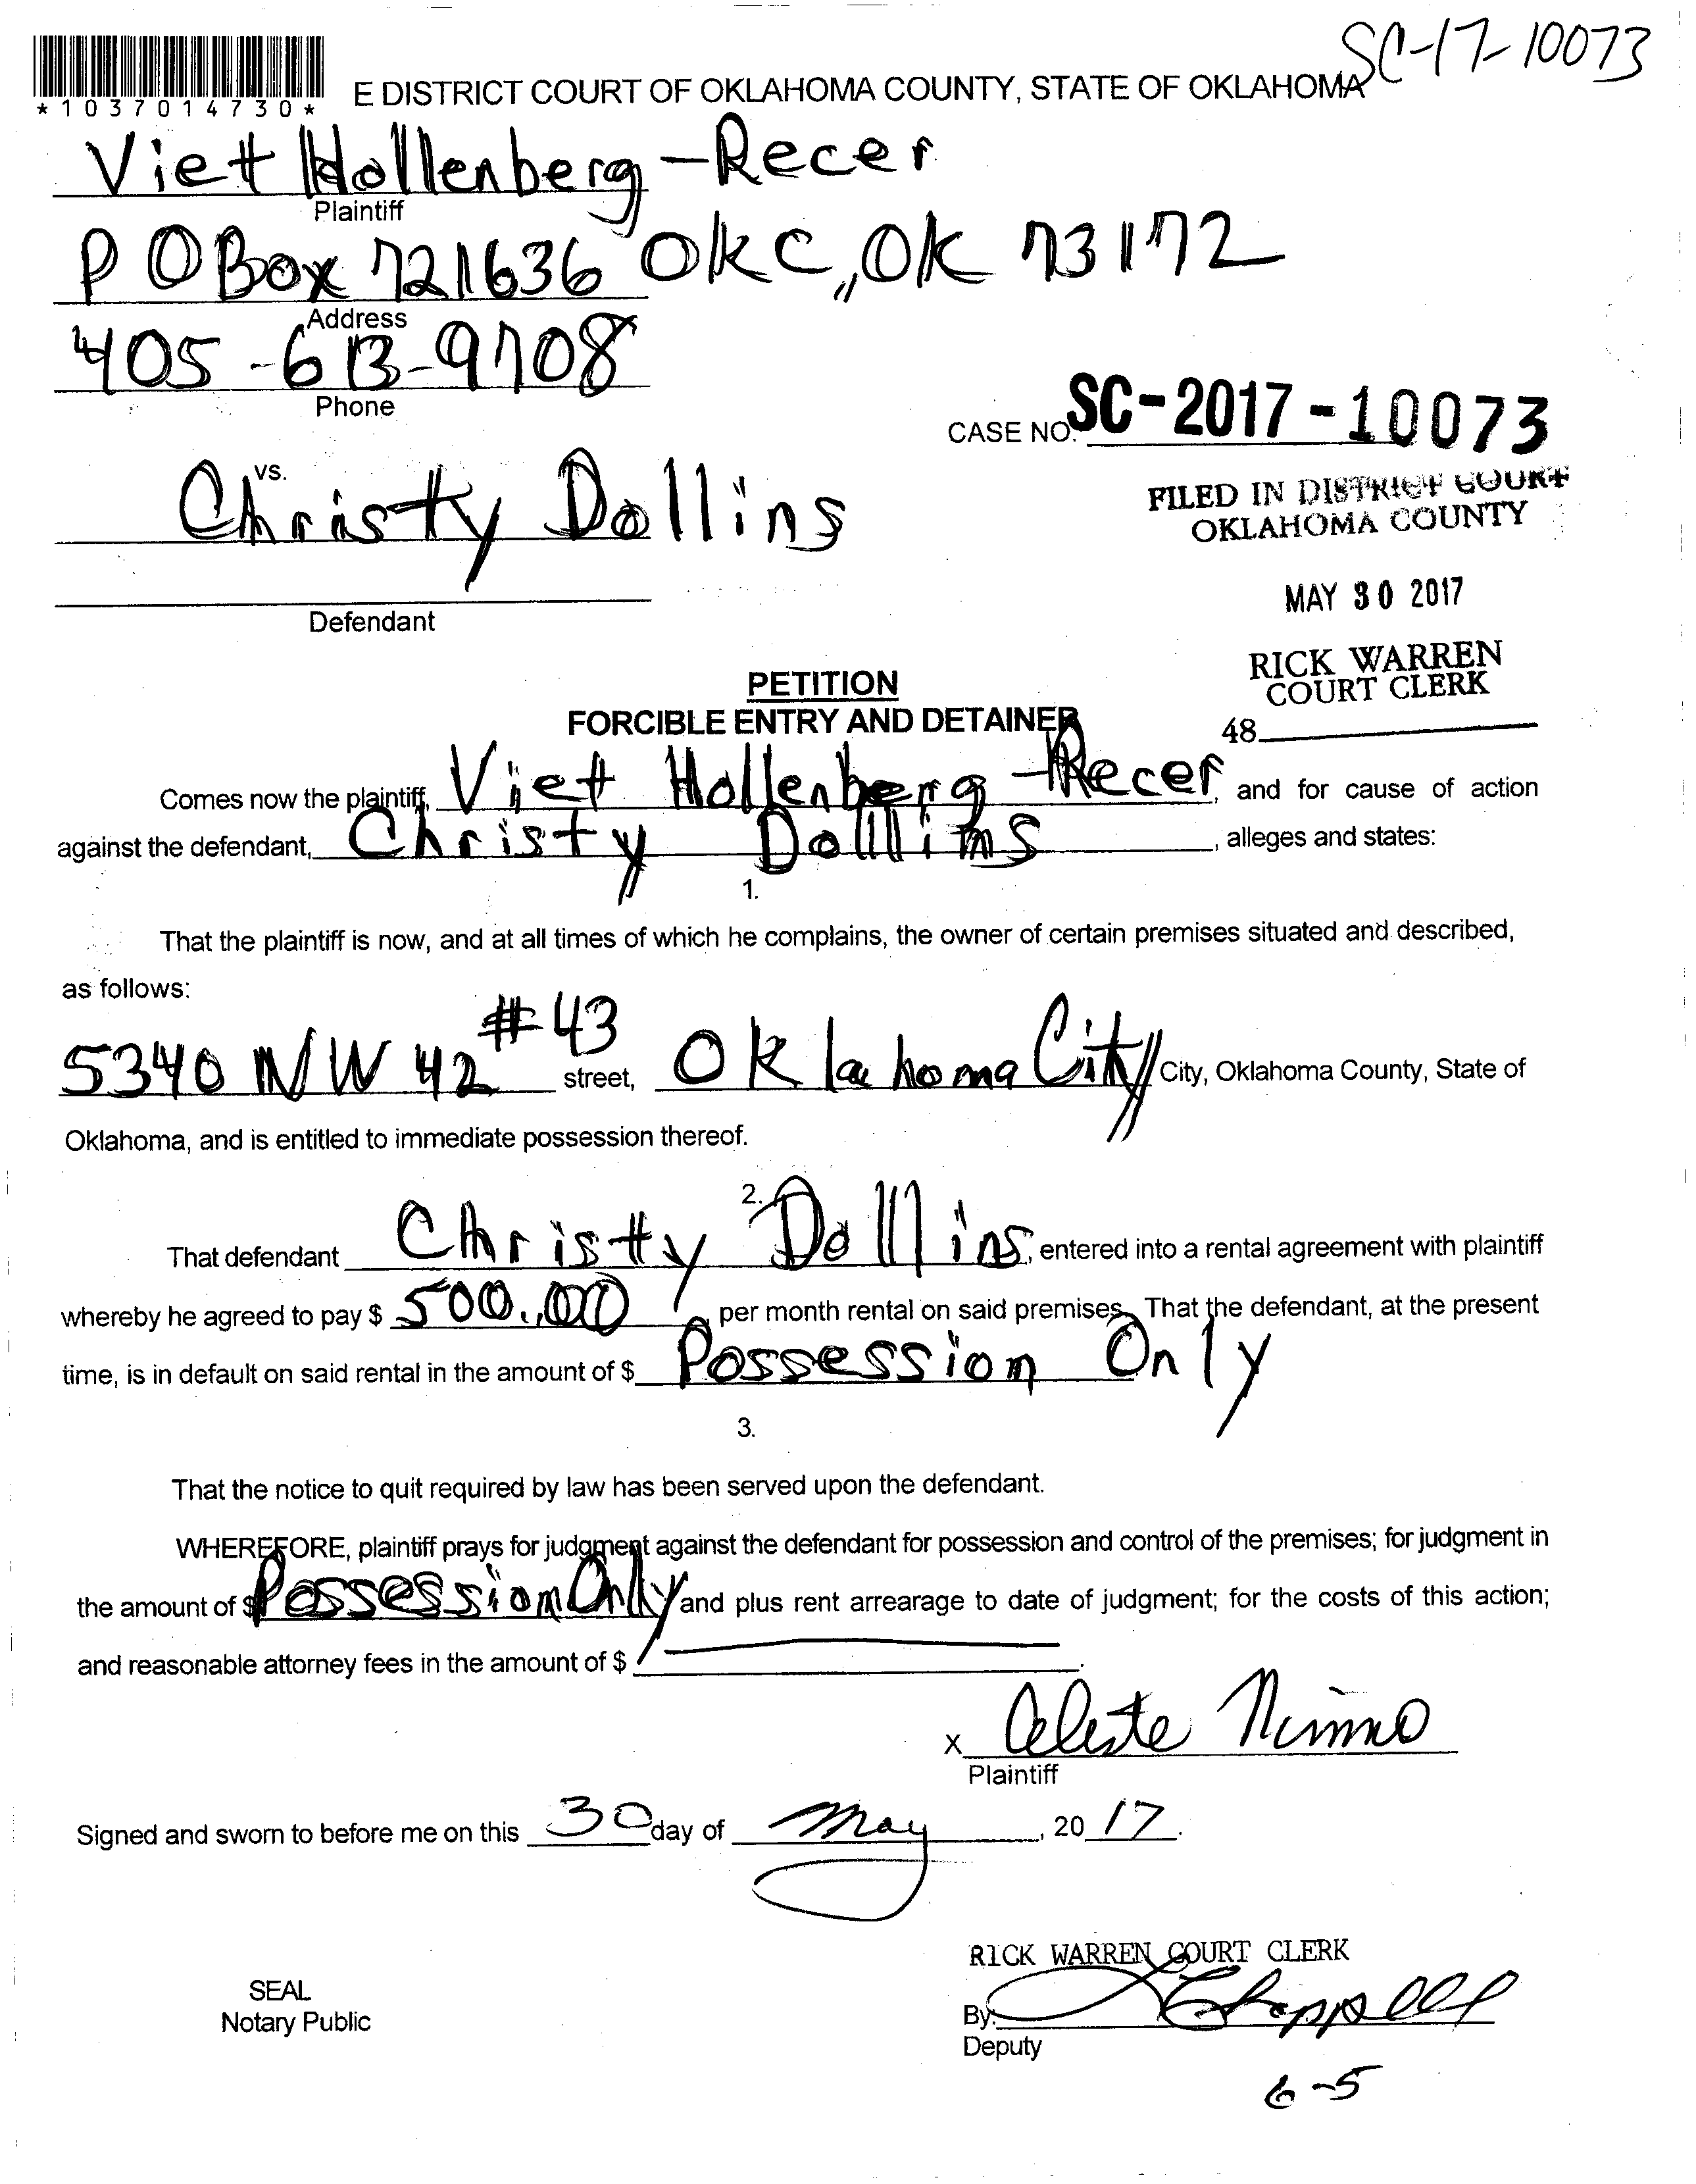 SC-17-10073
*1037014730*
E DISTRICT COURT OF OKLAHOMA COUNTY, STATE OF OKLAHOMA
Viet Hollenberg-Recer
Plaintiff
P O Box 721636 OKC, OK 73172
Address
405-613-9708
Phone
CASE NO. SC-2017-10073
vs.
Christy Dollins
FILED IN DISTRICT COURT
OKLAHOMA COUNTY
MAY 30 2017
Defendant
RICK WARREN
COURT CLERK
48
PETITION
FORCIBLE ENTRY AND DETAINER
Comes now the plaintiff, Viet Hollenberg-Recer, and for cause of action
against the defendant, Christy Dollins, alleges and states:
1.
That the plaintiff is now, and at all times of which he complains, the owner of certain premises situated and described,
as follows:
5340 NW 42 #43 street, Oklahoma City City, Oklahoma County, State of
Oklahoma, and is entitled to immediate possession thereof.
2.
That defendant Christy Dollins, entered into a rental agreement with plaintiff
whereby he agreed to pay $ 500.00, per month rental on said premises. That the defendant, at the present
time, is in default on said rental in the amount of $ Possession Only
3.
That the notice to quit required by law has been served upon the defendant.
WHEREFORE, plaintiff prays for judgment against the defendant for possession and control of the premises; for judgment in
the amount of $ Possession Only and plus rent arrearage to date of judgment; for the costs of this action;
and reasonable attorney fees in the amount of $
X Celeste Nimmo
Plaintiff
Signed and sworn to before me on this 30 day of May, 20 17.
RICK WARREN COURT CLERK
SEAL
Notary Public
By: Chappell
Deputy
6-5